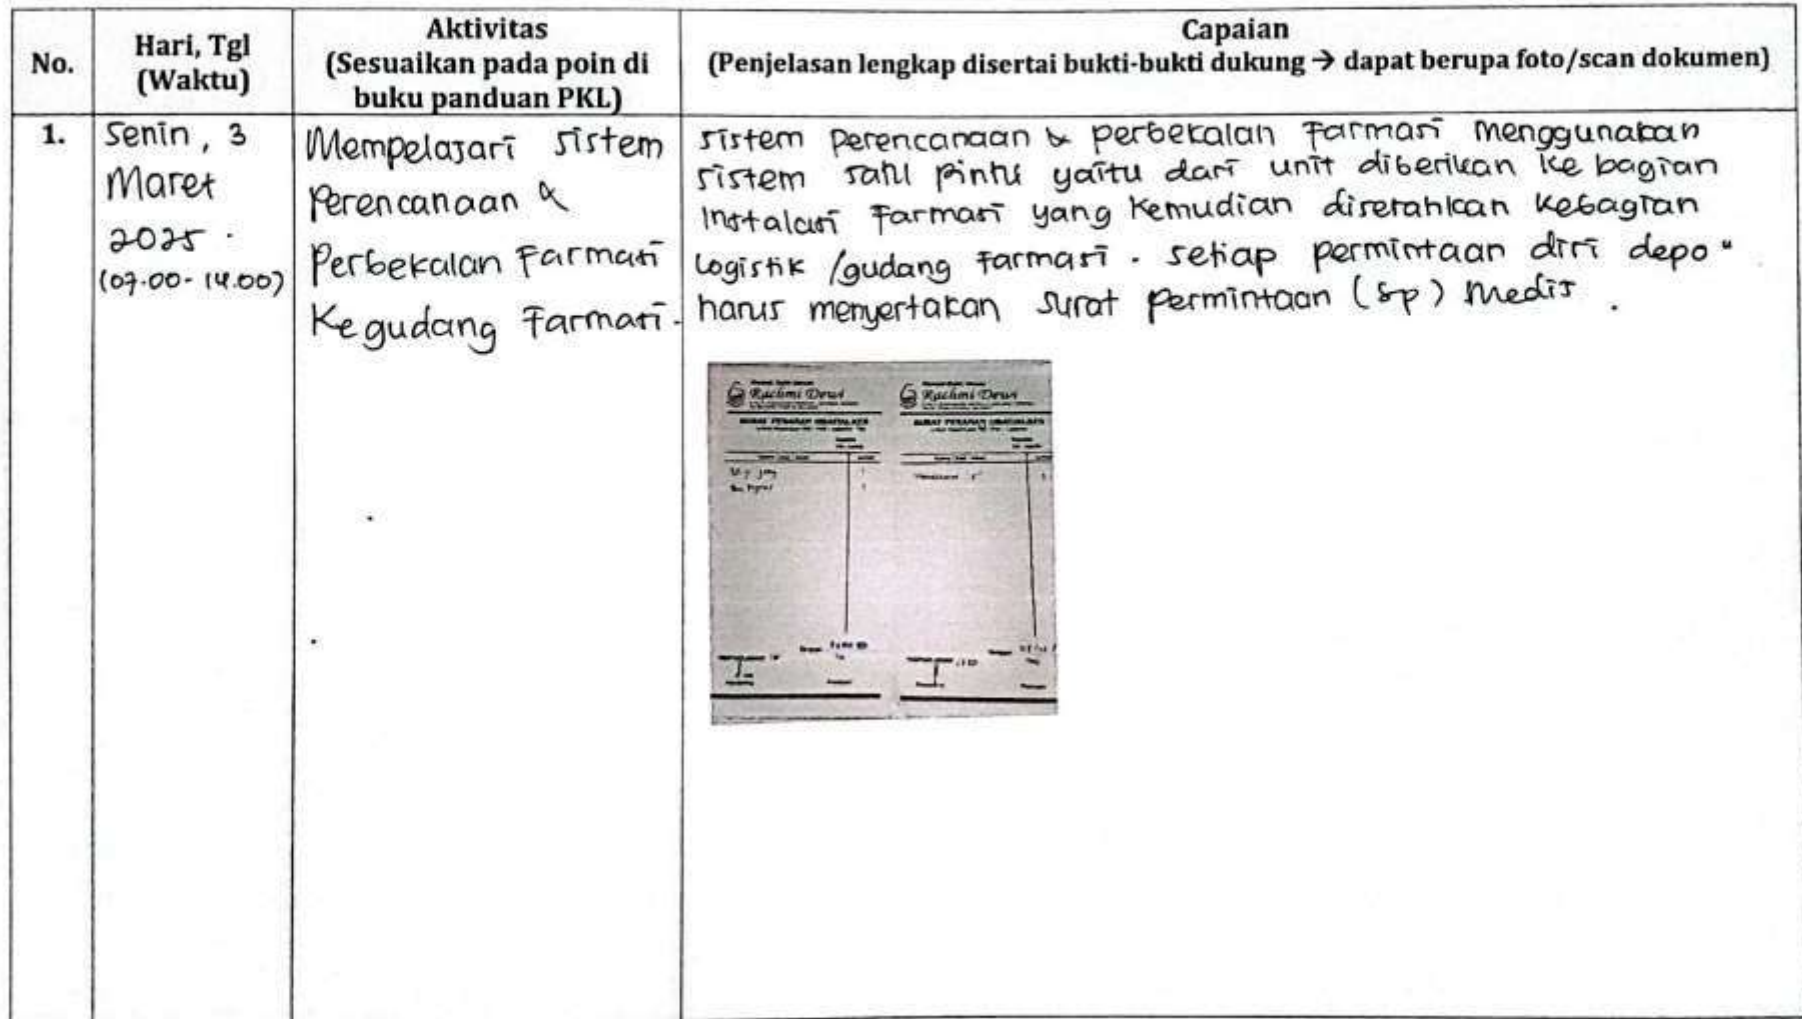 No.
Hari, Tgl
(Waktu)
Aktivitas
(Sesuaikan pada poin di
buku panduan PKL)
Capaian
(Penjelasan lengkap disertai bukti-bukti dukung → dapat berupa foto/scan dokumen)
1.
Senin, 3
Maret
2025.
(07.00-14.00)
Mempelajari sistem
Perencanaan &
Perbekalan Farmasi
Ke gudang Farmasi.
sistem perencanaan & perbekalan Farmasi menggunakan
sistem satu pintu yaitu dari unit diberikan ke bagian
Instalasi Farmasi yang kemudian diserahkan kebagian
Logistik /gudang Farmasi. setiap permintaan diri depo"
harus menyertakan surat permintaan (sp) Medis.
Rachmi Dewi
SURAT PESANAN OBAT/ALKES
Rachmi Dewi
SURAT PESANAN OBAT/ALKES